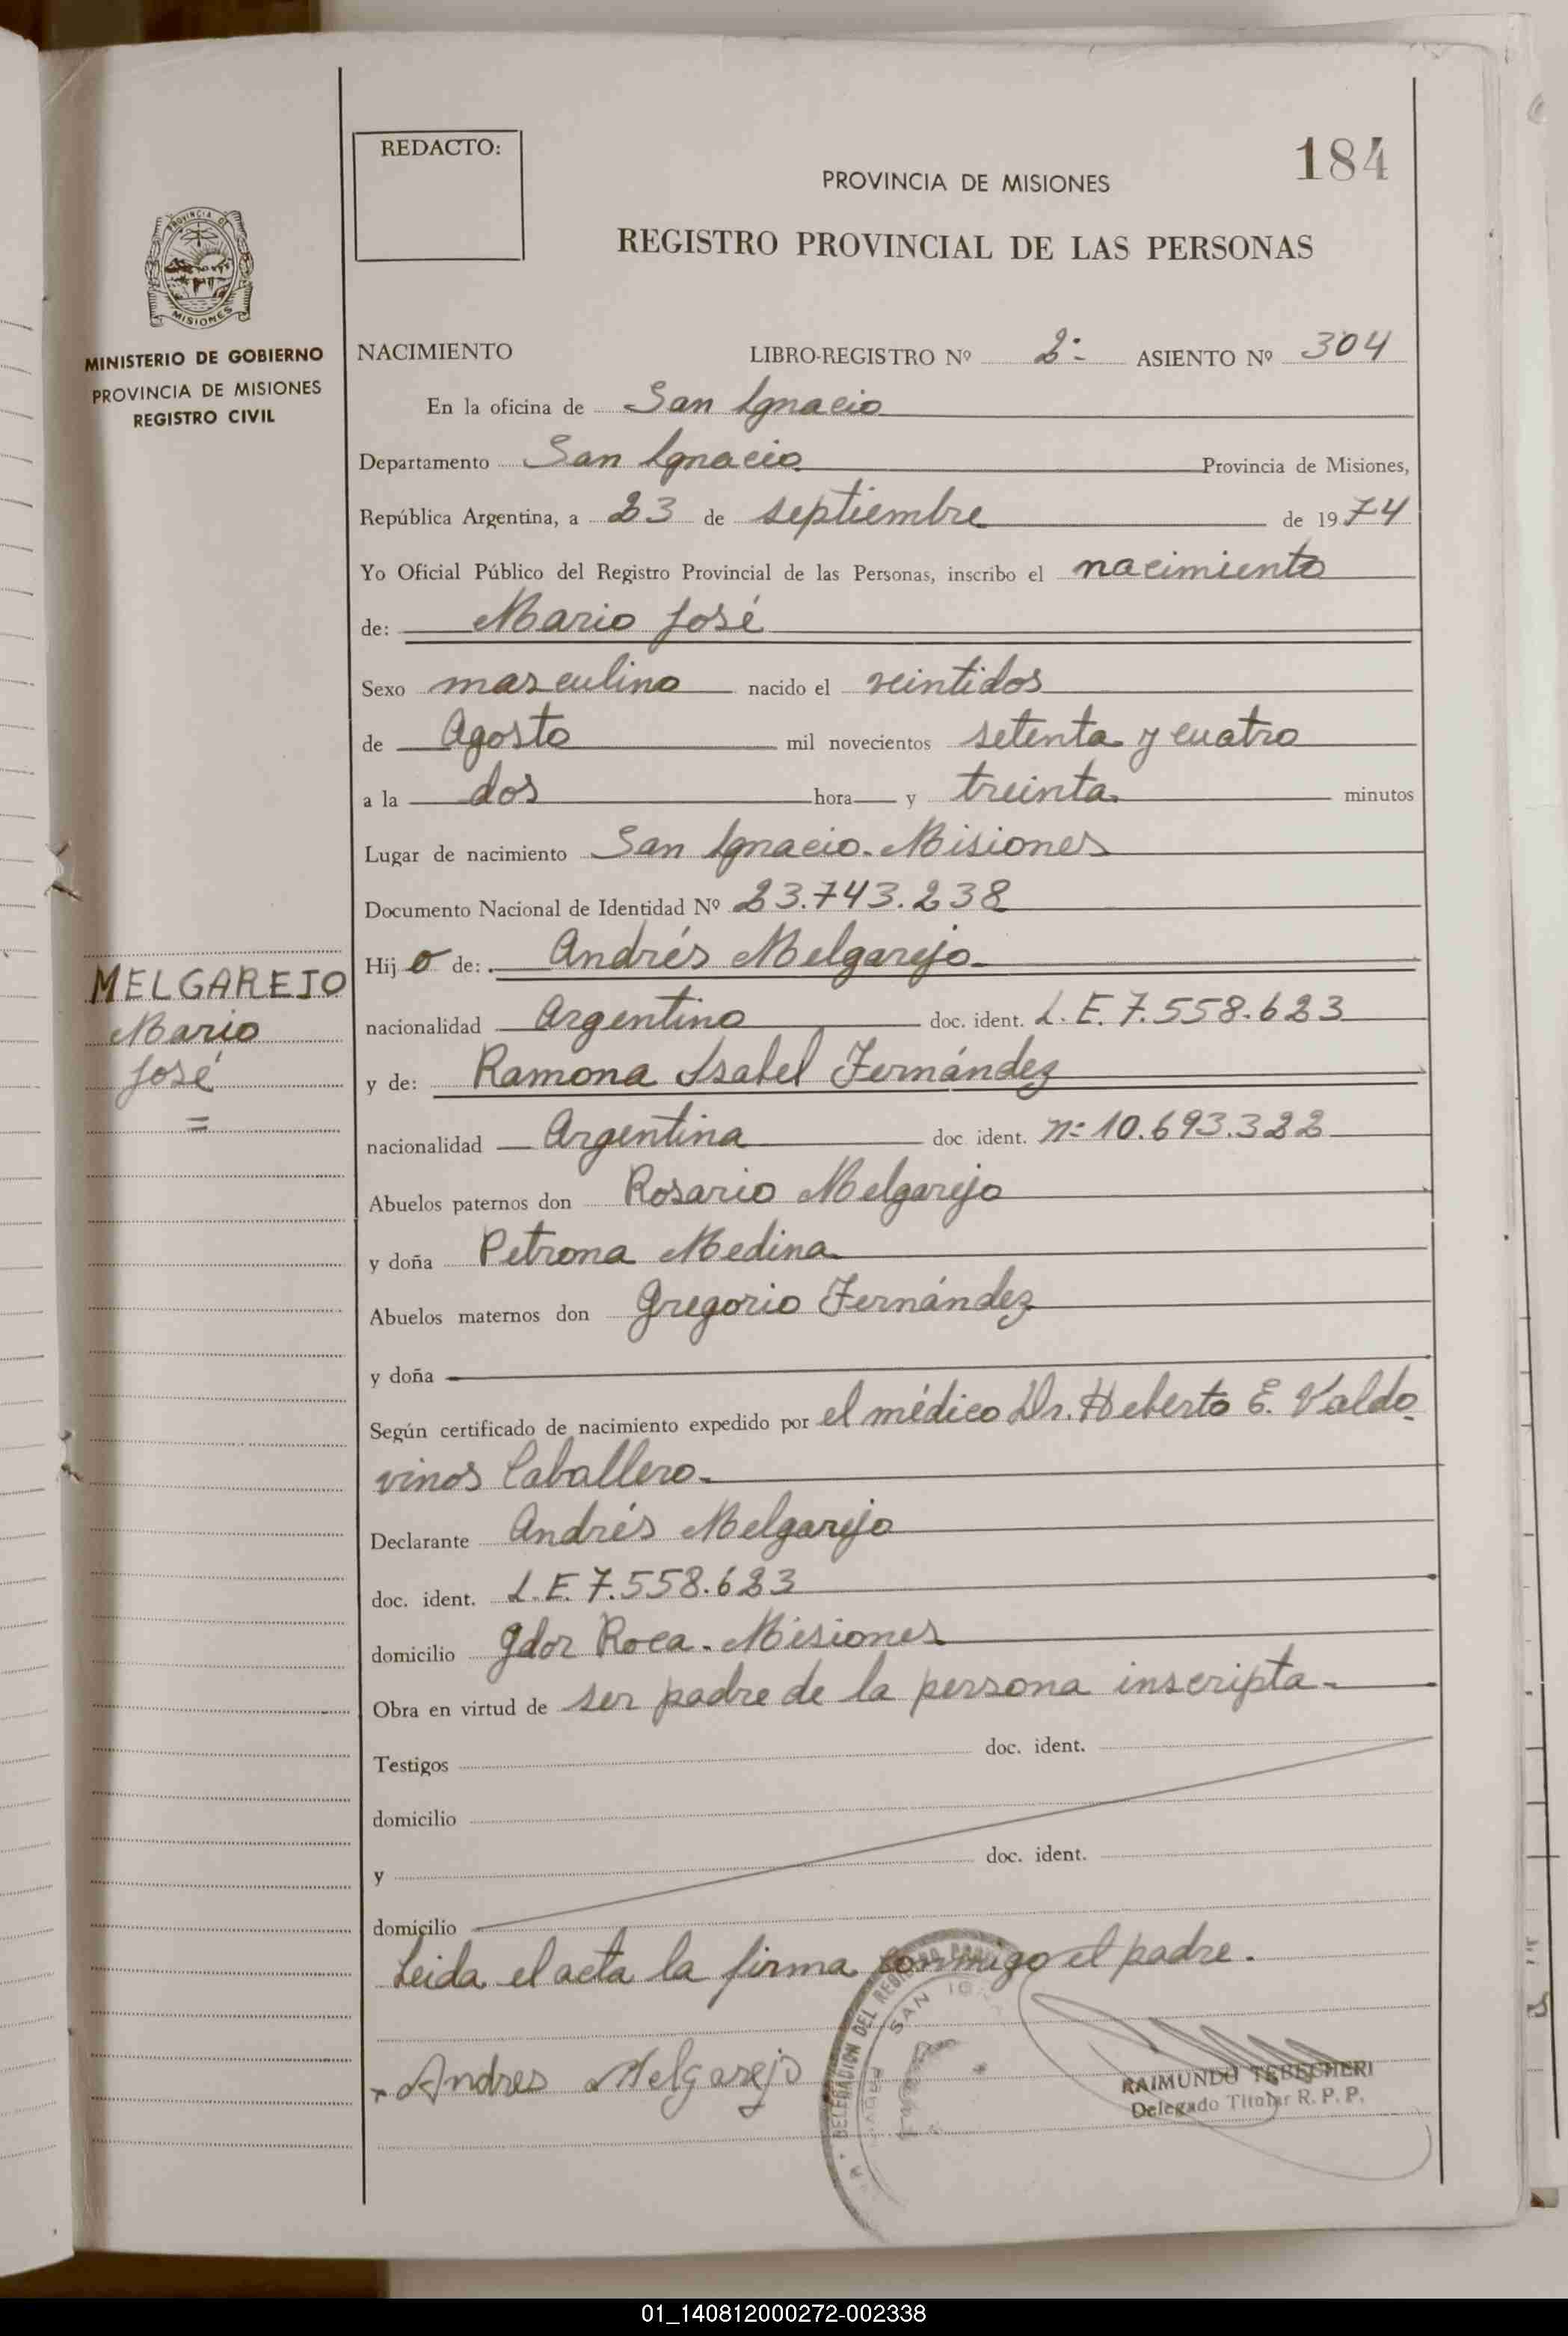 REDACTO:
184
PROVINCIA DE MISIONES
REGISTRO PROVINCIAL DE LAS PERSONAS
PROVINCIA DE
MISIONES
MINISTERIO DE GOBIERNO
PROVINCIA DE MISIONES
REGISTRO CIVIL
NACIMIENTO LIBRO-REGISTRO Nº 2º ASIENTO Nº 304
En la oficina de San Ignacio
Departamento San Ignacio Provincia de Misiones,
República Argentina, a 23 de septiembre de 1974
Yo Oficial Público del Registro Provincial de las Personas, inscribo el nacimiento
de: Mario José
Sexo masculino nacido el veintidos
de Agosto mil novecientos setenta y cuatro
a la dos hora y treinta minutos
Lugar de nacimiento San Ignacio. Misiones
Documento Nacional de Identidad Nº 23.743.238
Hijo de: Andrés Melgarejo
nacionalidad Argentino doc. ident. L.E. 7.558.623
y de: Ramona Isabel Fernández
nacionalidad Argentina doc ident. nº 10.693.322
Abuelos paternos don Rosario Melgarejo
y doña Petrona Medina
Abuelos maternos don Gregorio Fernández
y doña
Según certificado de nacimiento expedido por el médico Dr. Heberto E. Valdo
vinos Caballero.
Declarante Andrés Melgarejo
doc. ident. L.E. 7.558.623
domicilio Gdor Roca. Misiones
Obra en virtud de ser padre de la persona inscripta
Testigos doc. ident.
domicilio
y doc. ident.
domicilio
Leida el acta la firma conmigo el padre.
MELGAREJO
Mario
José
=
Andres Melgarejo
DELEGACION DEL REGISTRO
SAN
RAIMUNDO TEBECHERI
Delegado Titular R. P. P.
01_140812000272-002338